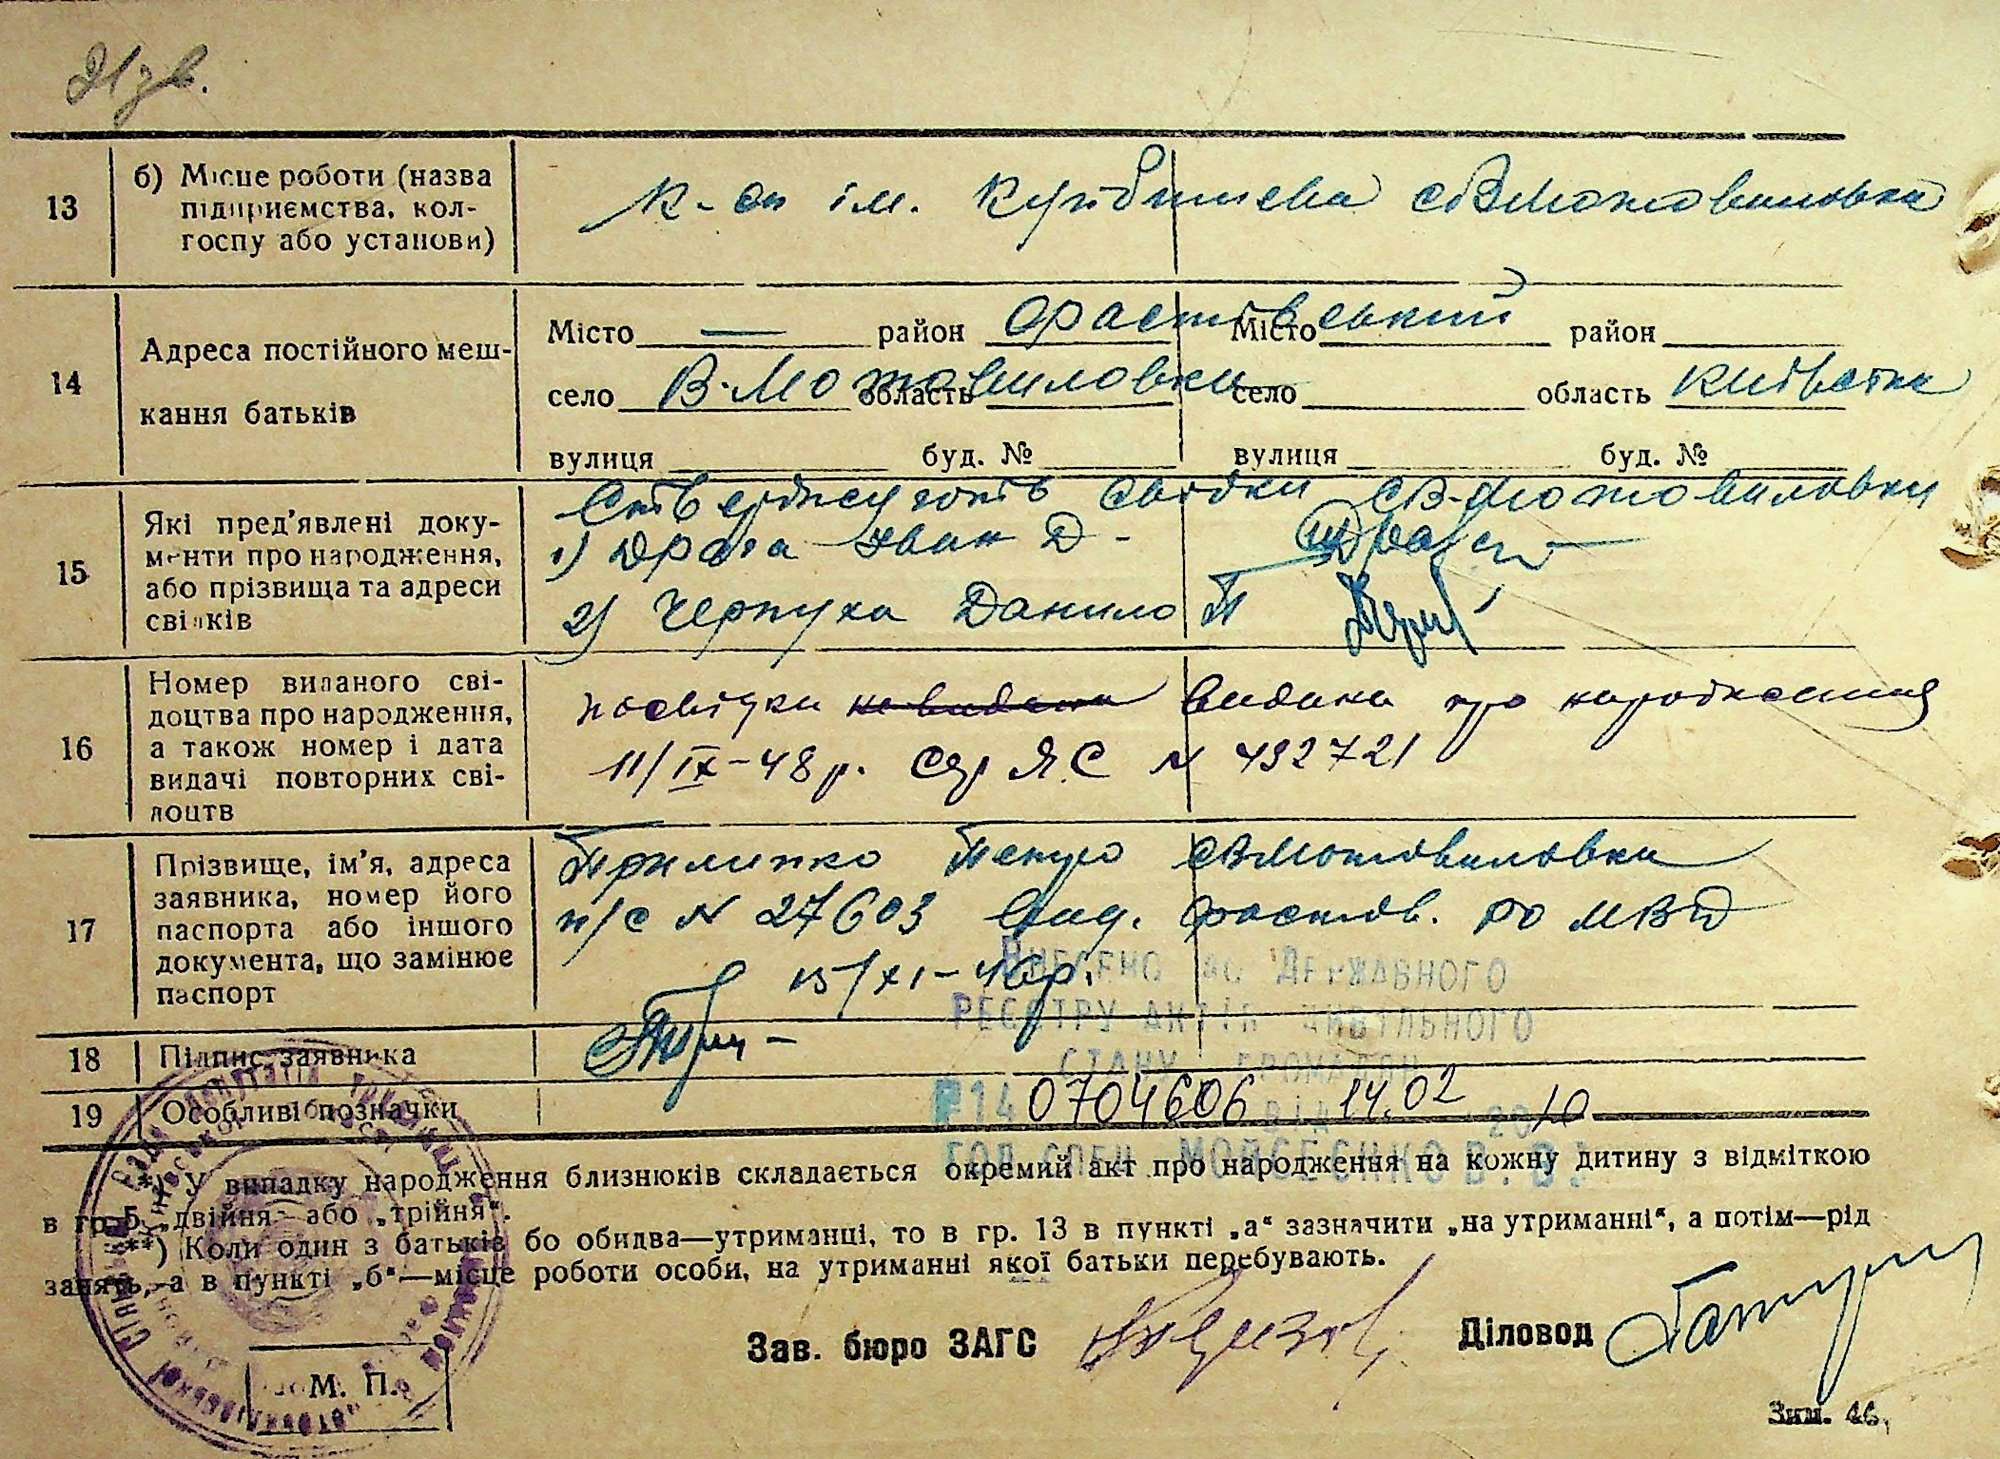 13 б) Місце роботи (назва підприємства, колгоспу або установи)
к-сп ім. Куйбишева с В Мотовиловка
14 Адреса постійного мешкання батьків
Місто — район Фастівський Місто район
село В-Мотовиловка область село область Київська
вулиця буд. № вулиця буд. №
15 Які пред'явлені документи про народження, або прізвища та адреси свідків
Стверджують свідки с В-Мотовиловки
1) Драга Іван Д -
2) Черпуха Данило П
16 Номер виданого свідоцтва про народження, а також номер і дата видачі повторних свідоцтв
посвідки не видана видана про народження
11/IX-48 р. Сер ЯС № 492721
17 Прізвище, ім'я, адреса заявника, номер його паспорта або іншого документа, що замінює паспорт
Прилипко с В Мотовиловка
п/с № 27603 вид. Фастів. РО МВД
15/XI-46р.
ВНЕСЕНО ДО ДЕРЖАВНОГО
РЕЄСТРУ АКТІВ ЦИВІЛЬНОГО
СТАНУ ГРОМАДЯН
18 Підпис заявника
19 Особливі позначки
14 0704606 ВІД 14.02 2010
ГОЛ СПЕЦ МОЙСЕЄНКО В.В.
*) У випадку народження близнюків складається окремий акт про народження на кожну дитину з відміткою
в гр. 5 „двійня“ або „трійня“.
**) Коли один з батьків бо обидва—утриманці, то в гр. 13 в пункті „а“ зазначити „на утриманні“, а потім—рід
занять, а в пункті „б“—місце роботи особи, на утриманні якої батьки перебувають.
Зав. бюро ЗАГС Діловод
М. П.